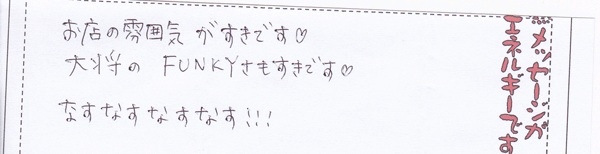 お店の雰囲気がすきです♡
大将のFUNKYさもすきです♡
なすなすなすなす!!!
※メッセージが
エネルギーです